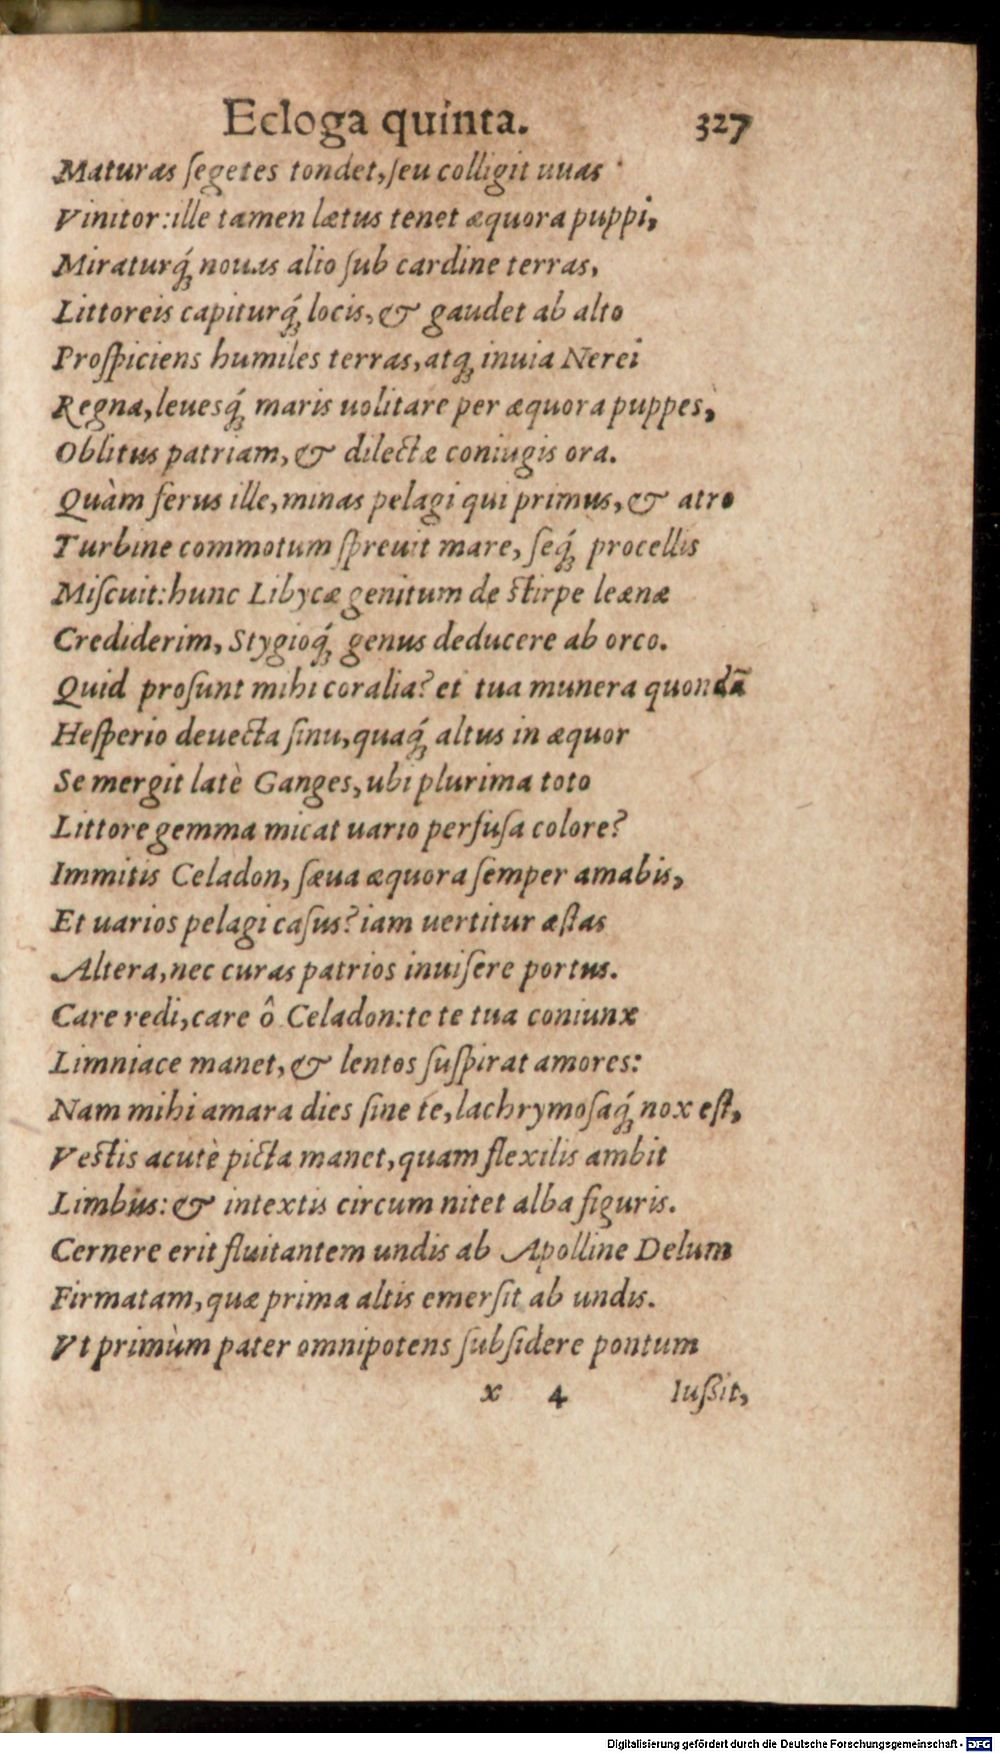 Ecloga quinta. 327
Maturas ſegetes tondet, ſeu colligit uuas
Vinitor: ille tamen lætus tenet æquora puppi,
Miraturq́; nouas alio ſub cardine terras,
Littoreis capiturq́; locis, & gaudet ab alto
Proſpiciens humiles terras, atq; inuia Nerei
Regna, leuesq́; maris uolitare per æquora puppes,
Oblitus patriam, & dilectæ coniugis ora.
Quàm ferus ille, minas pelagi qui primus, & atro
Turbine commotum ſpreuit mare, ſeq́; procellis
Miſcuit: hunc Libycæ genitum de ſtirpe leænæ
Crediderim, Stygioq́; genus deducere ab orco.
Quid proſunt mihi coralia? et tua munera quondã
Heſperio deuecta ſinu, quaq́; altus in æquor
Se mergit latè Ganges, ubi plurima toto
Littore gemma micat uario perfuſa colore?
Immitis Celadon, ſæua æquora ſemper amabis,
Et uarios pelagi caſus? iam uertitur æſtas
Altera, nec curas patrios inuiſere portus.
Care redi, care ô Celadon: te te tua coniunx
Limniace manet, & lentos ſuſpirat amores:
Nam mihi amara dies ſine te, lachrymoſaq́; nox eſt,
Veſtis acutè picta manet, quam flexilis ambit
Limbus: & intextis circum nitet alba figuris.
Cernere erit fluitantem undis ab Apolline Delum
Firmatam, quæ prima altis emerſit ab undis.
Vt primùm pater omnipotens ſubſidere pontum
x 4 Iußit,
Digitalisierung gefördert durch die Deutsche Forschungsgemeinschaft - DFG